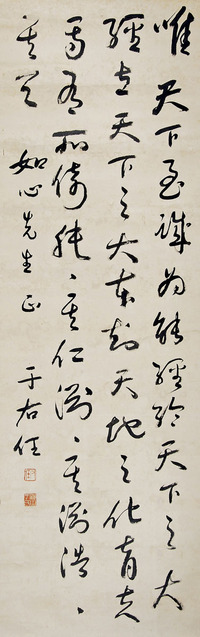 唯天下至誠為能經綸天下之大
經立天下之大本知天地之化育夫
焉有所倚肫、其仁淵、其淵浩、
其天
如心先生正
于右任